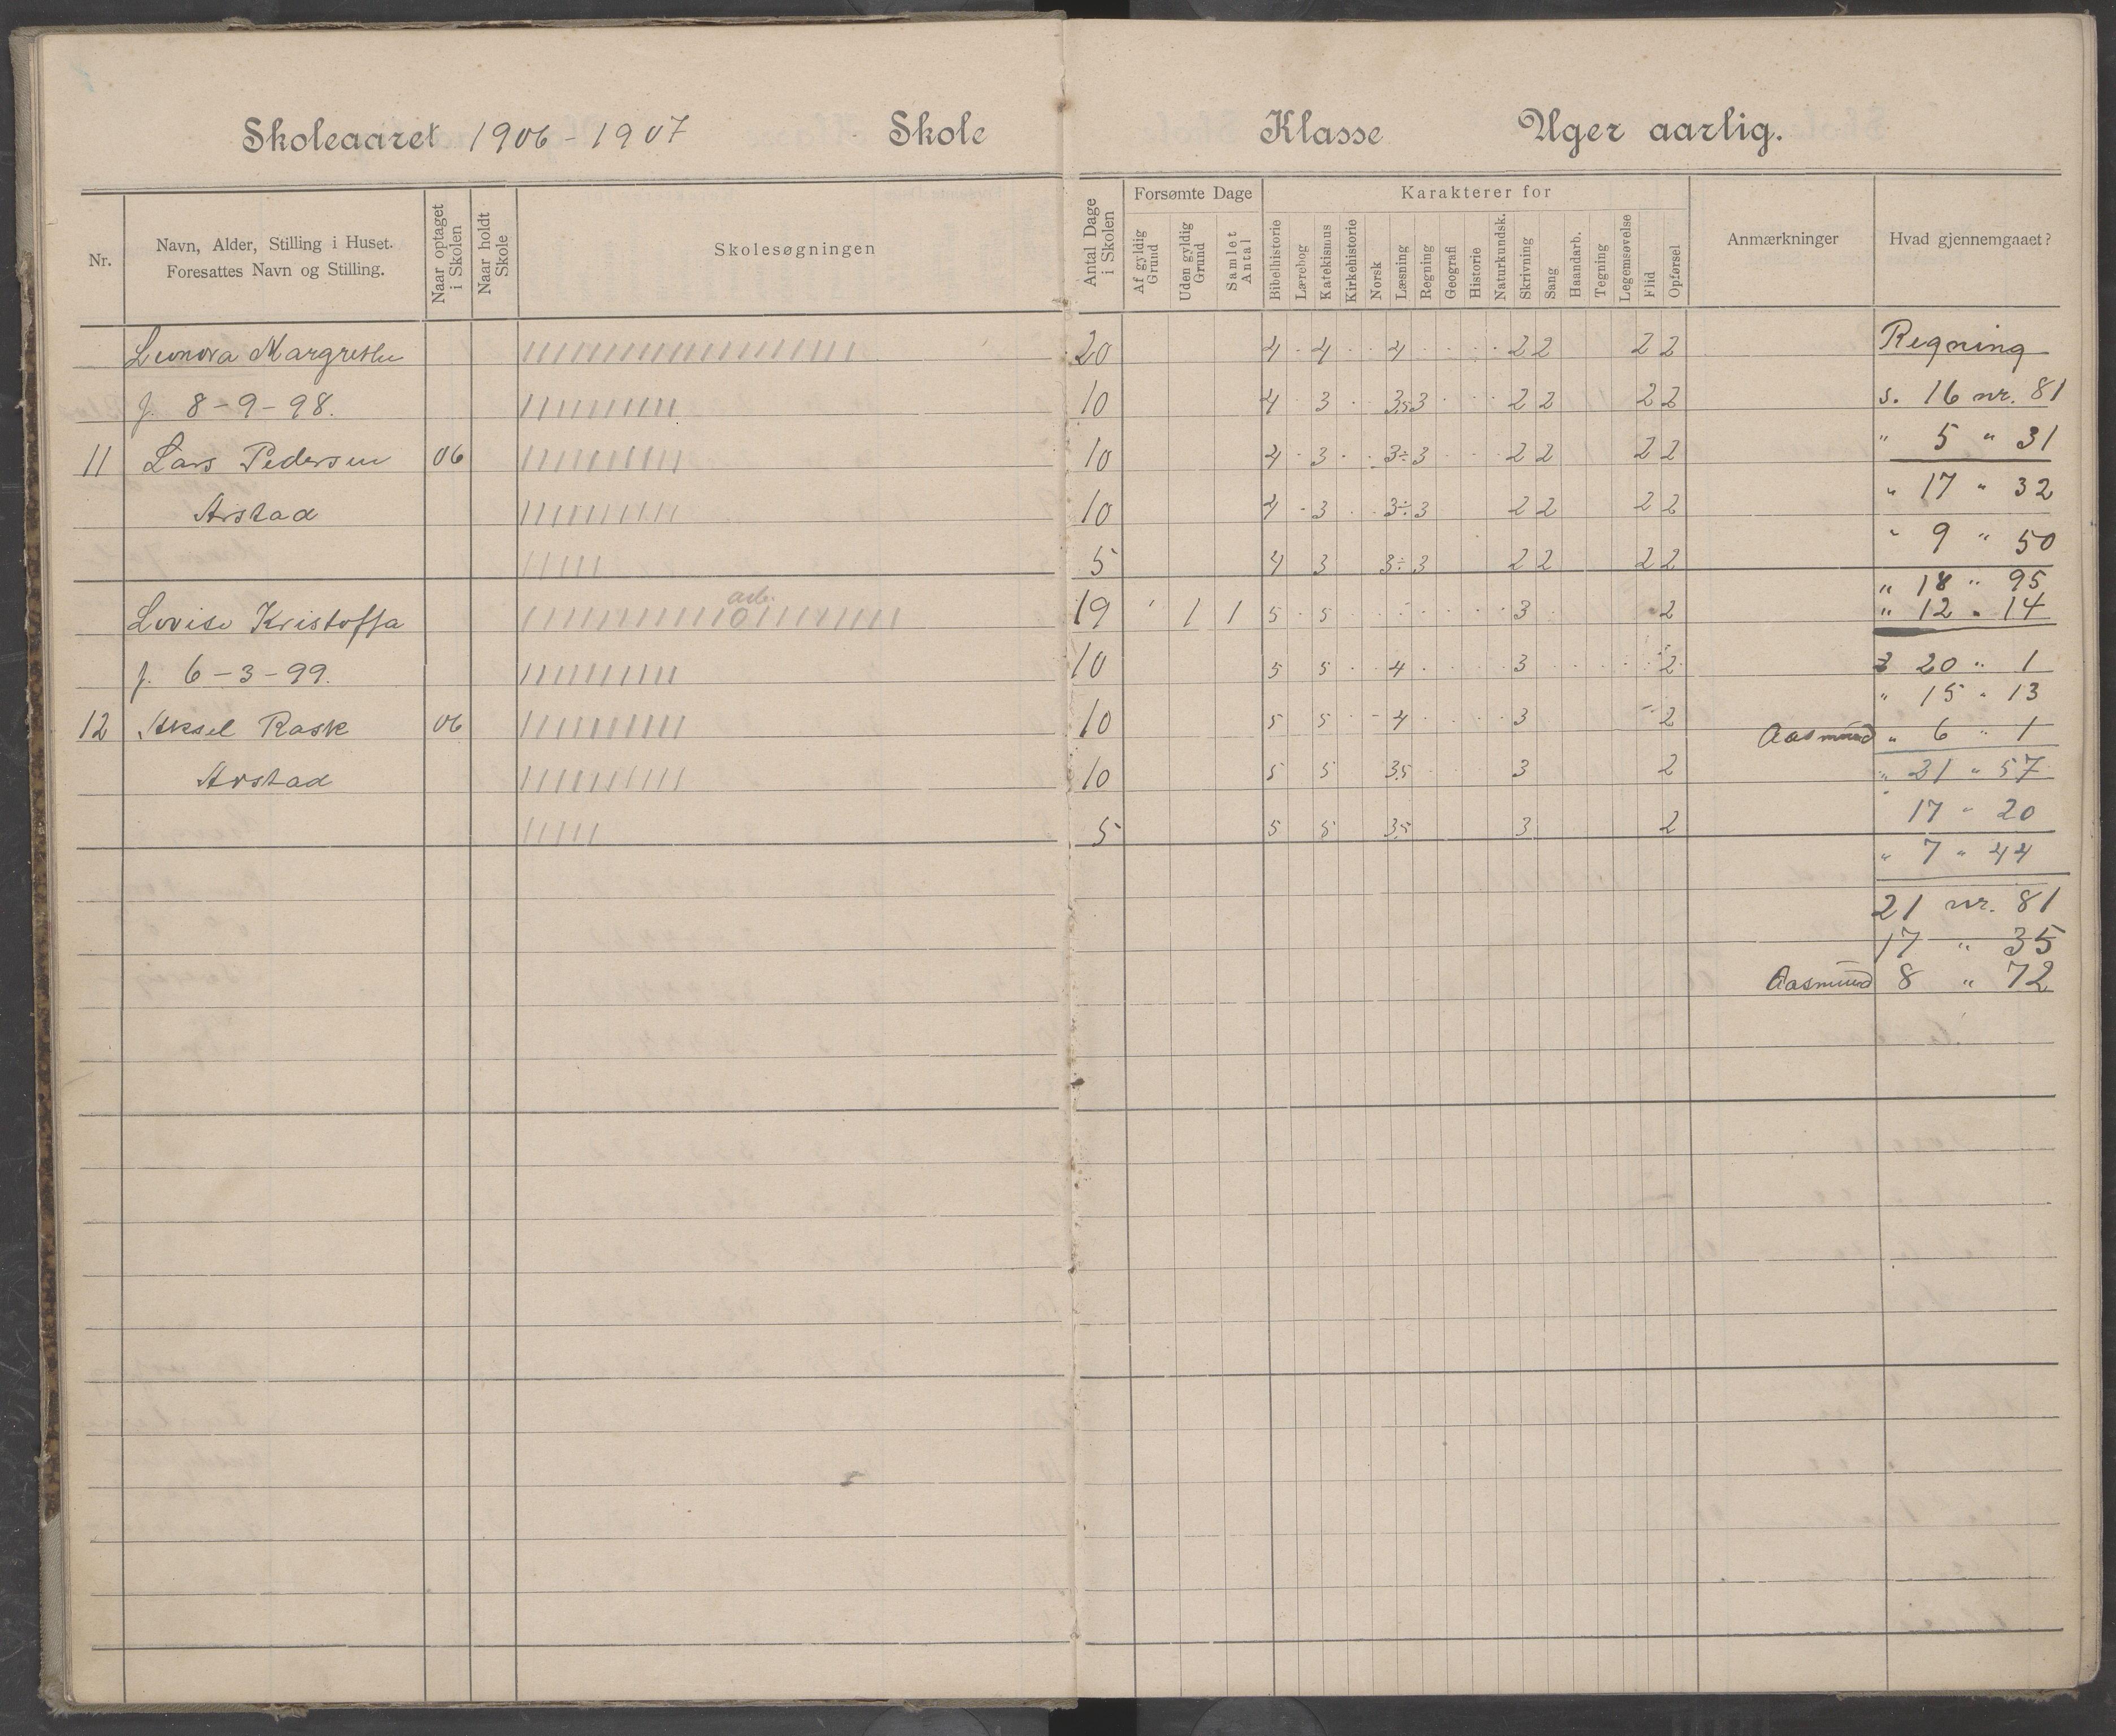 Skoleaaret 1906-1907 Skole Klasse Uger aarlig.
Nr.
Navn, Alder, Stilling i Huset.
Foresattes Navn og Stilling.
Naar optaget i Skolen
Naar holdt Skole
Skolesøgningen
Antal Dage i Skolen
Forsømte Dage
Af gyldig Grund
Uden gyldig Grund
Samlet Antal
Karakterer for
Bibelhistorie
Lærebog
Katekismus
Kirkehistorie
Norsk
Læsning
Regning
Geografi
Historie
Naturkundsk.
Skrivning
Sang
Haandarb.
Tegning
Legemsøvelse
Flid
Opførsel
Anmærkninger
Hvad gjennemgaaet?
Leonora Margrethe //////////////////// 20 4 4 4 2 2 2 2 Regning
f. 8-9-98. ////////// 10 4 3 3,5 3 2 2 2 2 s. 16 nr. 81
11 Lars Pedersen 06 ////////// 10 4 3 3÷ 3 2 2 2 2 " 5 " 31
Arstad ////////// 10 4 3 3÷ 3 2 2 2 2 " 17 " 32
///// 5 4 3 3÷ 3 2 2 2 2 " 9 " 50
" 18 " 95
Lovise Kristoffa 19 1 1 5 5 3 2 " 12 " 14
f. 6-3-99. ////////// 10 5 5 4 3 2 20 " 1
" 15 " 13
12 Aksel Rask 06 ////////// 10 5 5 4 3 2 Aasmund " 6 " 1
Arstad ////////// 10 5 5 3,5 3 2 " 21 " 57
17 " 20
///// 5 5 5 3,5 3 2
" 7 " 44
21 nr. 81
17 " 35
Aasmund 8 " 72